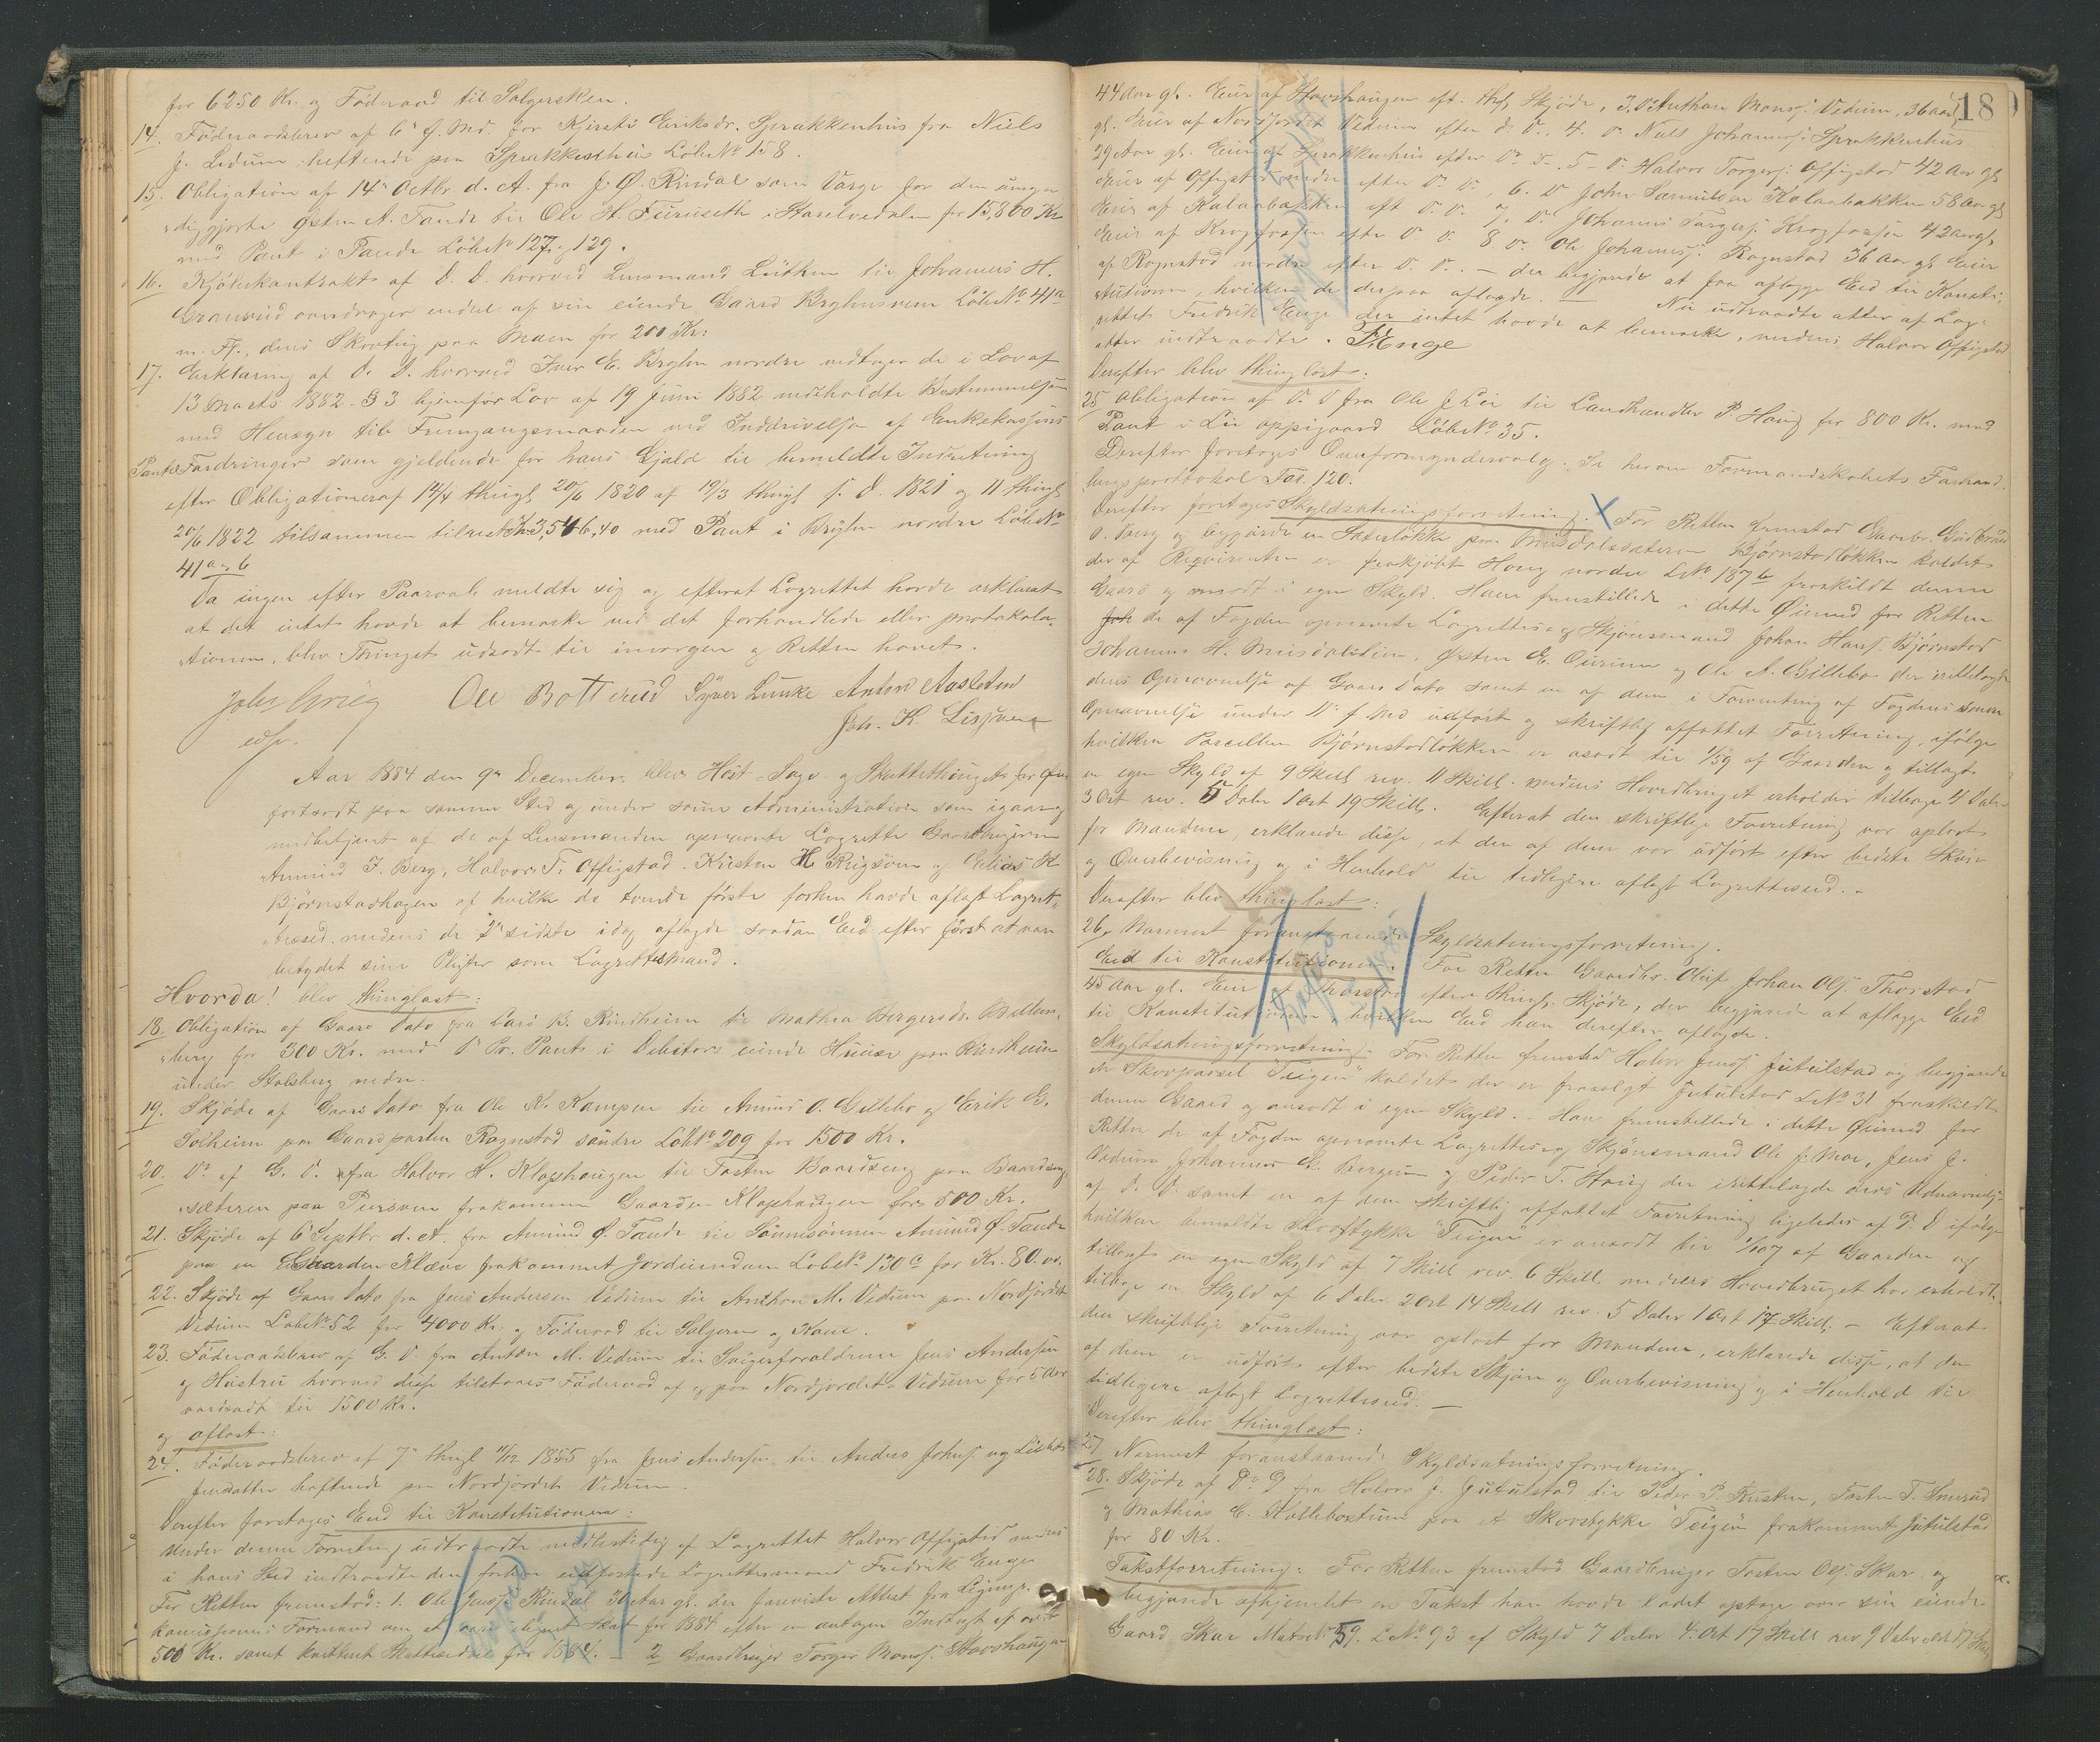 for 6250 Kr. og Föderaad til Sælgersken.
14. Föderaadsbrev af 6' f. Md. for Kjersti Eriksdr. Sprækkenhus fra Niels
J. Ledum heftende paa Sprækkenhus LöbeNo 158.
15. Obligation af 14' Octbr. d. A. fra J. Ø. Rindal som Værge for den umyn-
diggjorte Østen A. Tande til Ole H. Furuseth i Stor Elvedalen for 15,800 Kr
med Pant i Tande LöbeNo 127 og 129.
16. Kjöbekontrakt af D. D. hvorved Lensmand Lütken til Johannes H.
Granrud overdrager endel af sin eiende Gaard Bryhnsveen LöbeNo 41a
m. Fl., dens Skovteig paa Moen for 200 Kr:
17. Erklæring af D. D. hvorved Iver E. Bryhn nordre vedtager de i Lov af
13 Marts 1882 § 3 hjemför Lov af 19 Juni 1882 indeholdte Bestemmelser
med Hensyn til Fremgangsmaaden ved Inddrivelse af Enkekassens
Pante Fordringer som gjeldende for hans Gjæld til bemeldte Indretning
efter Obligationer af 12/4 thingl 20/6 1820 af 19/3 thingl s. D. 1821 og 11 thingl
20/6 1822 tilsammen tilrest Kr. 3,546,40 med Pant i Bryhn nordre LöbeNo
41a og b
Da ingen efter Paaraab meldte sig og efterat Lagrettet havde erklæret
at det intet havde at bemærke ved det forhandlede eller protokola-
tionen, blev Thinget udsadt til imorgen og Retten hævet.
Johs Grieg Ole Botterud Syver Lunke Anton Aasletten
edsv. Joh. K. Lisjven
Aar 1884 den 9de December blev Höst-Sage- og Skattethinget for Øier
fortsadt paa samme Sted og under samme Administration som igaar og
medbetjent af de af Lensmanden opnævnte Lagrette Gaardbrugerne
Amund J. Berg, Halvor T. Offigstad, Kristen H Prigsven og Elias K
Björnstadhagen af hvilke de tvende förste forhen havde aflagt Lagret-
teseed, medens de 2de sidste idag aflagde saadan Eed efter först at være
betydet sine Pligter som Lagrettesmænd.
Hvorda! blev thinglæst:
18. Obligation af Gaars Dato fra Lars B. Rindheim til Mathea Bergersdr. Mellem-
berg for 300 Kr. med 1' Pr. Pant i Debitors eiende Huuse paa Rindheim
under Stalsberg nedre.
19. Skjöde af Gaars Dato fra Ole N. Kampen til Amund O. Gillebo og Erik G.
Solheim paa Gaardparten Rognstad söndre LöbeNo 209 for 1500 Kr.
20. Do af G. D. fra Halvor H. Klophaugen til Tosten Baardseng paa Baardseng
sæteren paa Pürsven frakommen Gaarden Klophaugen for 500 Kr.
21. Skjöde af 6 Septbr d. A. fra Amund Ø. Tande til Sönnesönnen Amund Ø. Tande
paa en Gaarden Kleve frakommet Jordeiendom LöbeNo 130c for Kr. 80.00.
22. Skjöde af Gaars Dato fra Jens Andersen Vedum til Anthon M. Vedum paa Nordjordet
Vedum LöbeNo 52 for 4000 Kr. og Föderaad til Sælgeren og Kone.
23. Föderaadsbrev af G. D. fra Anton M. Vedum til Svigerforældrene Jens Andersen
og Hustru hvorved disse tilstaaes Föderaad af og paa Nordjordet Vedum for 5 Aar
værdsadt til 1500 Kr.
og aflæst:
24. Föderaadsbrev af 7' thingl 11/12 1855 fra Jens Andersen til Anders Johnsen og Lisbet
Jensdatter heftende paa Nordjordet Vedum.
Derefter foretoges Eed til Konstitutionen:
Under denne Forretning udtraadte midlertidig af Lagrettet Halvor Offigstad medens
i hans Sted indtraadte den forhen edfæstede Lagrettesmand Fredrik Enge
For Retten fremstod: 1. Ole Jens Rindal 30 Aar gl. der foreviste Attest fra Ligningskommissionens
Formand om at være lignet Skat for 1884 efter en antagen Indtægt af over
500 Kr. samt kvitteret Skatteseddel for 1884. – 2 Gaardbruger Torger Mons. Storshaugen
18
44 Aar gl. Eier af Storshaugen eft. thgl Skjöde, 3. Do Anthon Mons. Vedum, 36 aar
gl. Eier af Nordjordet Vedum efter d. D., 4. Do Niels Johannes. Sprækkenhus
29 Aar gl. Eier af Sprækkenhus efter Do D. 5 Do Halvor Torgers. Offigstad 42 Aar gl
Eier af Offigstad nedre efter D. D., 6. Do John Samuelsen Kalvebakken 58 Aar gl
Eier af Kalvebakken eft D. D. 7. Do Johannes Torgers. Krogfossen 42 aar gl,
Eier af Krogfossen efter D. D. 8. Do Ole Johannes. Rognstad 36 Aar gl Eier
af Rognstad nordre efter D. D. – der begjærede at faa aflægge Eed til Konsti-
tutionen, hvilken de derpaa aflagde. – Nu udtraadte atter af Lag-
rettet Fredrik Enge der intet havde at bemærke, medens Halvor Offigstad
atter indtraadte. F Enge
Derefter blev thinglæst:
25 Obligation af D. D fra Ole J Lie til Landhandler P. Haug for 800 Kr. med
Pant i Lie oppigaard LöbeNo 35.
Derefter foretoges Overformyndervalg. Se herom Formandskabets Forhand-
lingsprotokol Fol. 120.
Derefter foretoges Skyldsætningsforretning. X For Retten fremstod Gaardbr. Gudbrand
O. Haug og begjærede en Sæterlökke paa Musdalssæteren Björnstadlökken kaldet
der af Reqvirenten er frakjöbt Haug nordre LNo 187b fraskildt denne
Gaard og ansadt i egen Skyld. Han fremstillede i dette Øiemed for Retten
de af Fogden opnævnte Lagrettes og Skjönsmænd Johan Hans. Björnstad
Johannes H. Musdalslien, Østen E. Ourum og Ole A. Gillebo der irettelagde
dens Opnævnelse af Gaars Dato samt en af dem i Forventning af Fogdens senere
Opnævnelse under 11' f. Md udfört og skriftlig affattet Forretning, ifölge
hvilken Parcellen Björnstadlökken er ansadt til 1/59 af Gaarden og tillagt
en egen Skyld af 9 Skill rev. 11 Skill. medens Hovedbruget erholder tilbage 4 Daler
3 Ort rev. 5 Daler 1 Ort 19 Skill. Efterat den skriftlige Forretning var oplæst
for Mændene, erklærede disse, at den af dem var udfört efter bedste Skjön
og Overbevisning og i Henhold til tidligere aflagt Lagretteseed. –
Derefter blev thinglæst:
26. Nærmest foranstaaende Skyldsætningsforretning.
Eed til Konstitutionen. For Retten Gaardbr. Oluf Johan Ols. Thorstad
45 Aar gl. Eier af Thorstad efter thingl. Skjöde, der begjærede at aflægge Eed
til Konstitutionen, hvilken Eed han derefter aflagde.
Skyldsætningsforretning. For Retten fremstod Halvor Jens. Jutulstad og begjærede
et Skovparcel "Teigen" kaldet der er frasolgt Jutulstad LNo 31 fraskildt
denne Gaard og ansadt i egen Skyld. – Han fremstillede i dette Øiemed for
Retten de af Fogden opnævnte Lagrettes og Skjönsmænd Ole J. Moe, Jens J.
Vedum, Johannes E. Bergum og Peder T. Haug der irettelagde deres Udnævnelse
af D. D. samt en af dem skriftlig affattet Forretning ligeledes af D. D ifölge
hvilken bemeldte Skovstykke "Teigen" er ansadt til 1/107 af Gaarden og
tillagt en egen Skyld af 7 Skill rev. 6 Skill. medens Hovedbruget har erholdt
tilbage en Skyld af 6 Daler 2 Ort 14 Skill rev. 5 Daler 1 Ort 17 Skill. – Efterat
den skriftlige Forretning var oplæst for Mændene, erklærede disse, at den
af dem er udfört efter bedste Skjön og Overbevisning og i Henhold til
tidligere aflagt Lagretteseed. –
Derefter blev thinglæst:
27 Nærmest foranstaaende Skyldsætningsforretning.
28. Skjöde af D. D fra Halvor J. Jutulstad til Peder P. Rusten, Tosten T. Smerud
og Mathias C. Kalleboxtuen paa et Skovstykke "Teigen" frakommet Jutulstad
for 80 Kr.
Takstforretning: For Retten fremstod Gaardbruger Tosten Ols. Skar og
begjærede afhjemlet en Takst han havde ladet optage over sin eiende
Gaard Skar MatrNo 59. LNo 93 af Skyld 7 Daler 4 Ort 17 Skill rev 9 Daler